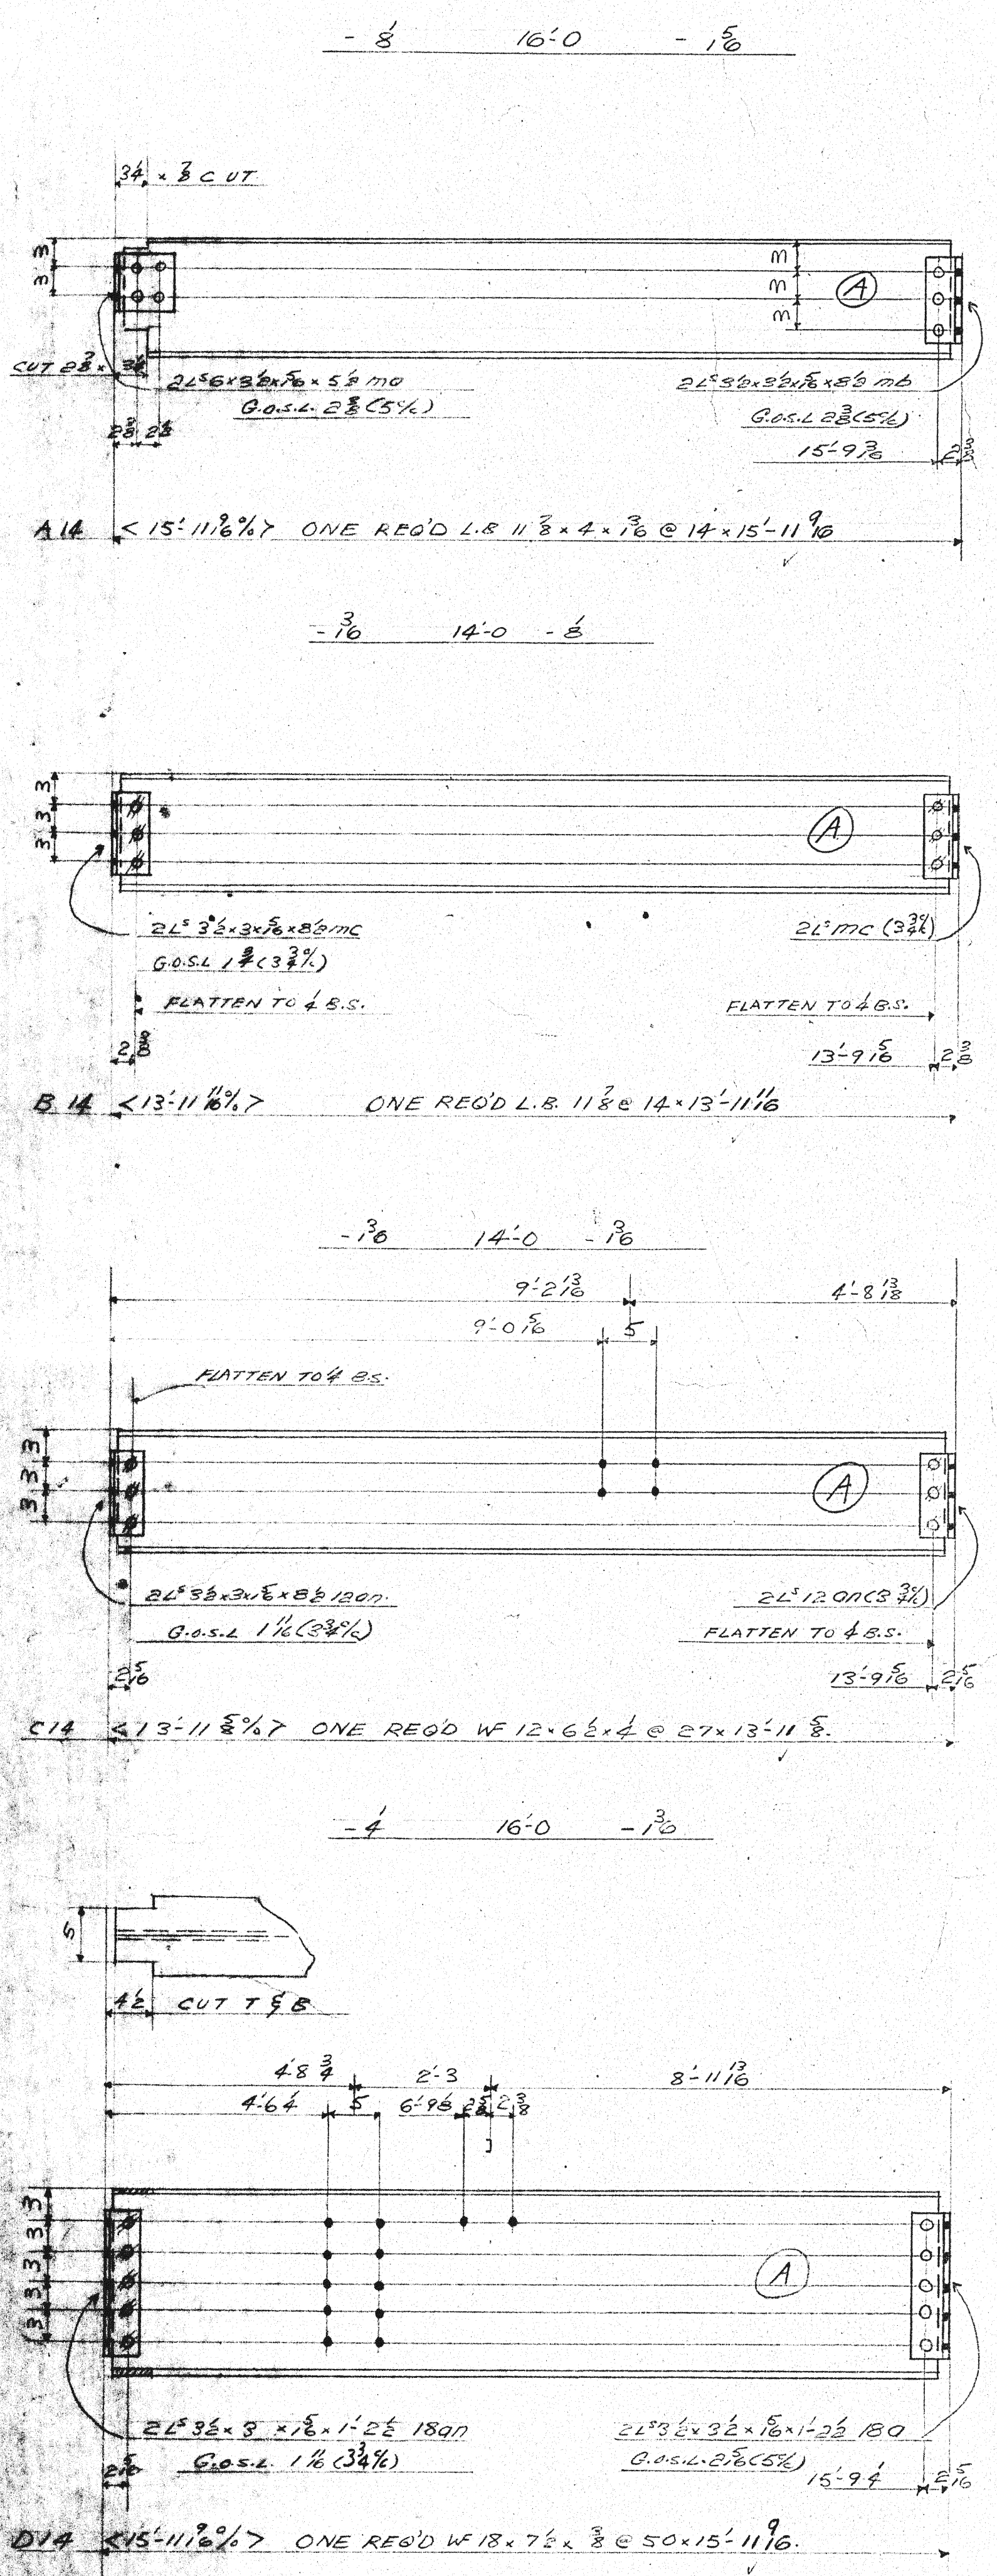 - 1/8 16'-0 - 5/16
3 1/4 x 7/8 CUT
3 3
3 3 3
A
CUT 2 7/8 x 3 1/4
2Ls 6x3 1/2x5/16x5 1/2 ma
G.O.S.L. 2 3/8 (5 c/c)
2Ls 3 1/2x3 1/2x5/16x8 1/2 mb
G.O.S.L 2 3/8 (5 c/c)
2 3/8 2 1/8
15'-9 3/16 2 3/8
A14 <15'-11 9/16 o/o> ONE REQ'D L.B 11 7/8 x 4 x 3/16 @ 14 x 15'-11 9/16
- 3/16 14'-0 - 1/8
3 3 3
A
2Ls 3 1/2x3x5/16x8 1/2 mc
G.O.S.L 1 3/4 (3 3/4 c/c)
2Ls mc (3 3/4 c/c)
FLATTEN TO 1/4 B.S.
FLATTEN TO 1/4 B.S.
2 3/8
13'-9 5/16 2 3/8
B 14 <13'-11 11/16 o/o> ONE REQ'D L.B. 11 7/8 @ 14 x 13'-11 11/16
- 3/16 14'-0 - 3/16
9'-2 13/16 4'-8 13/16
9'-0 5/16 5
FLATTEN TO 1/4 B.S.
3 3 3
A
2Ls 3 1/2x3x5/16x8 1/2 12an.
G.O.S.L 1 11/16 (3 3/4 c/c)
2Ls 12an (3 3/4 c/c)
FLATTEN TO 1/4 B.S.
2 5/16
13'-9 5/16 2 5/16
C14 <13'-11 5/8 o/o> ONE REQ'D WF 12 x 6 1/2 x 1/4 @ 27 x 13'-11 5/8.
- 1/4 16'-0 - 3/16
5
4 1/2 CUT T & B
4'-8 3/4 2'-3 8'-11 13/16
4'-6 1/4 5 6'-9 3/8 2 3/8 2 3/8
3 3 3 3 3
A
2Ls 3 1/2 x 3 x 5/16 x 1'-2 1/2 18an
G.O.S.L. 1 11/16 (3 3/4 c/c)
2Ls 3 1/2 x 3 1/2 x 5/16 x 1'-2 1/2 18a
G.O.S.L. 2 5/16 (5 c/c)
2 5/16
15'-9 1/4 2 5/16
D14 <15'-11 9/16 o/o> ONE REQ'D WF 18 x 7 1/2 x 3/8 @ 50 x 15'-11 9/16.